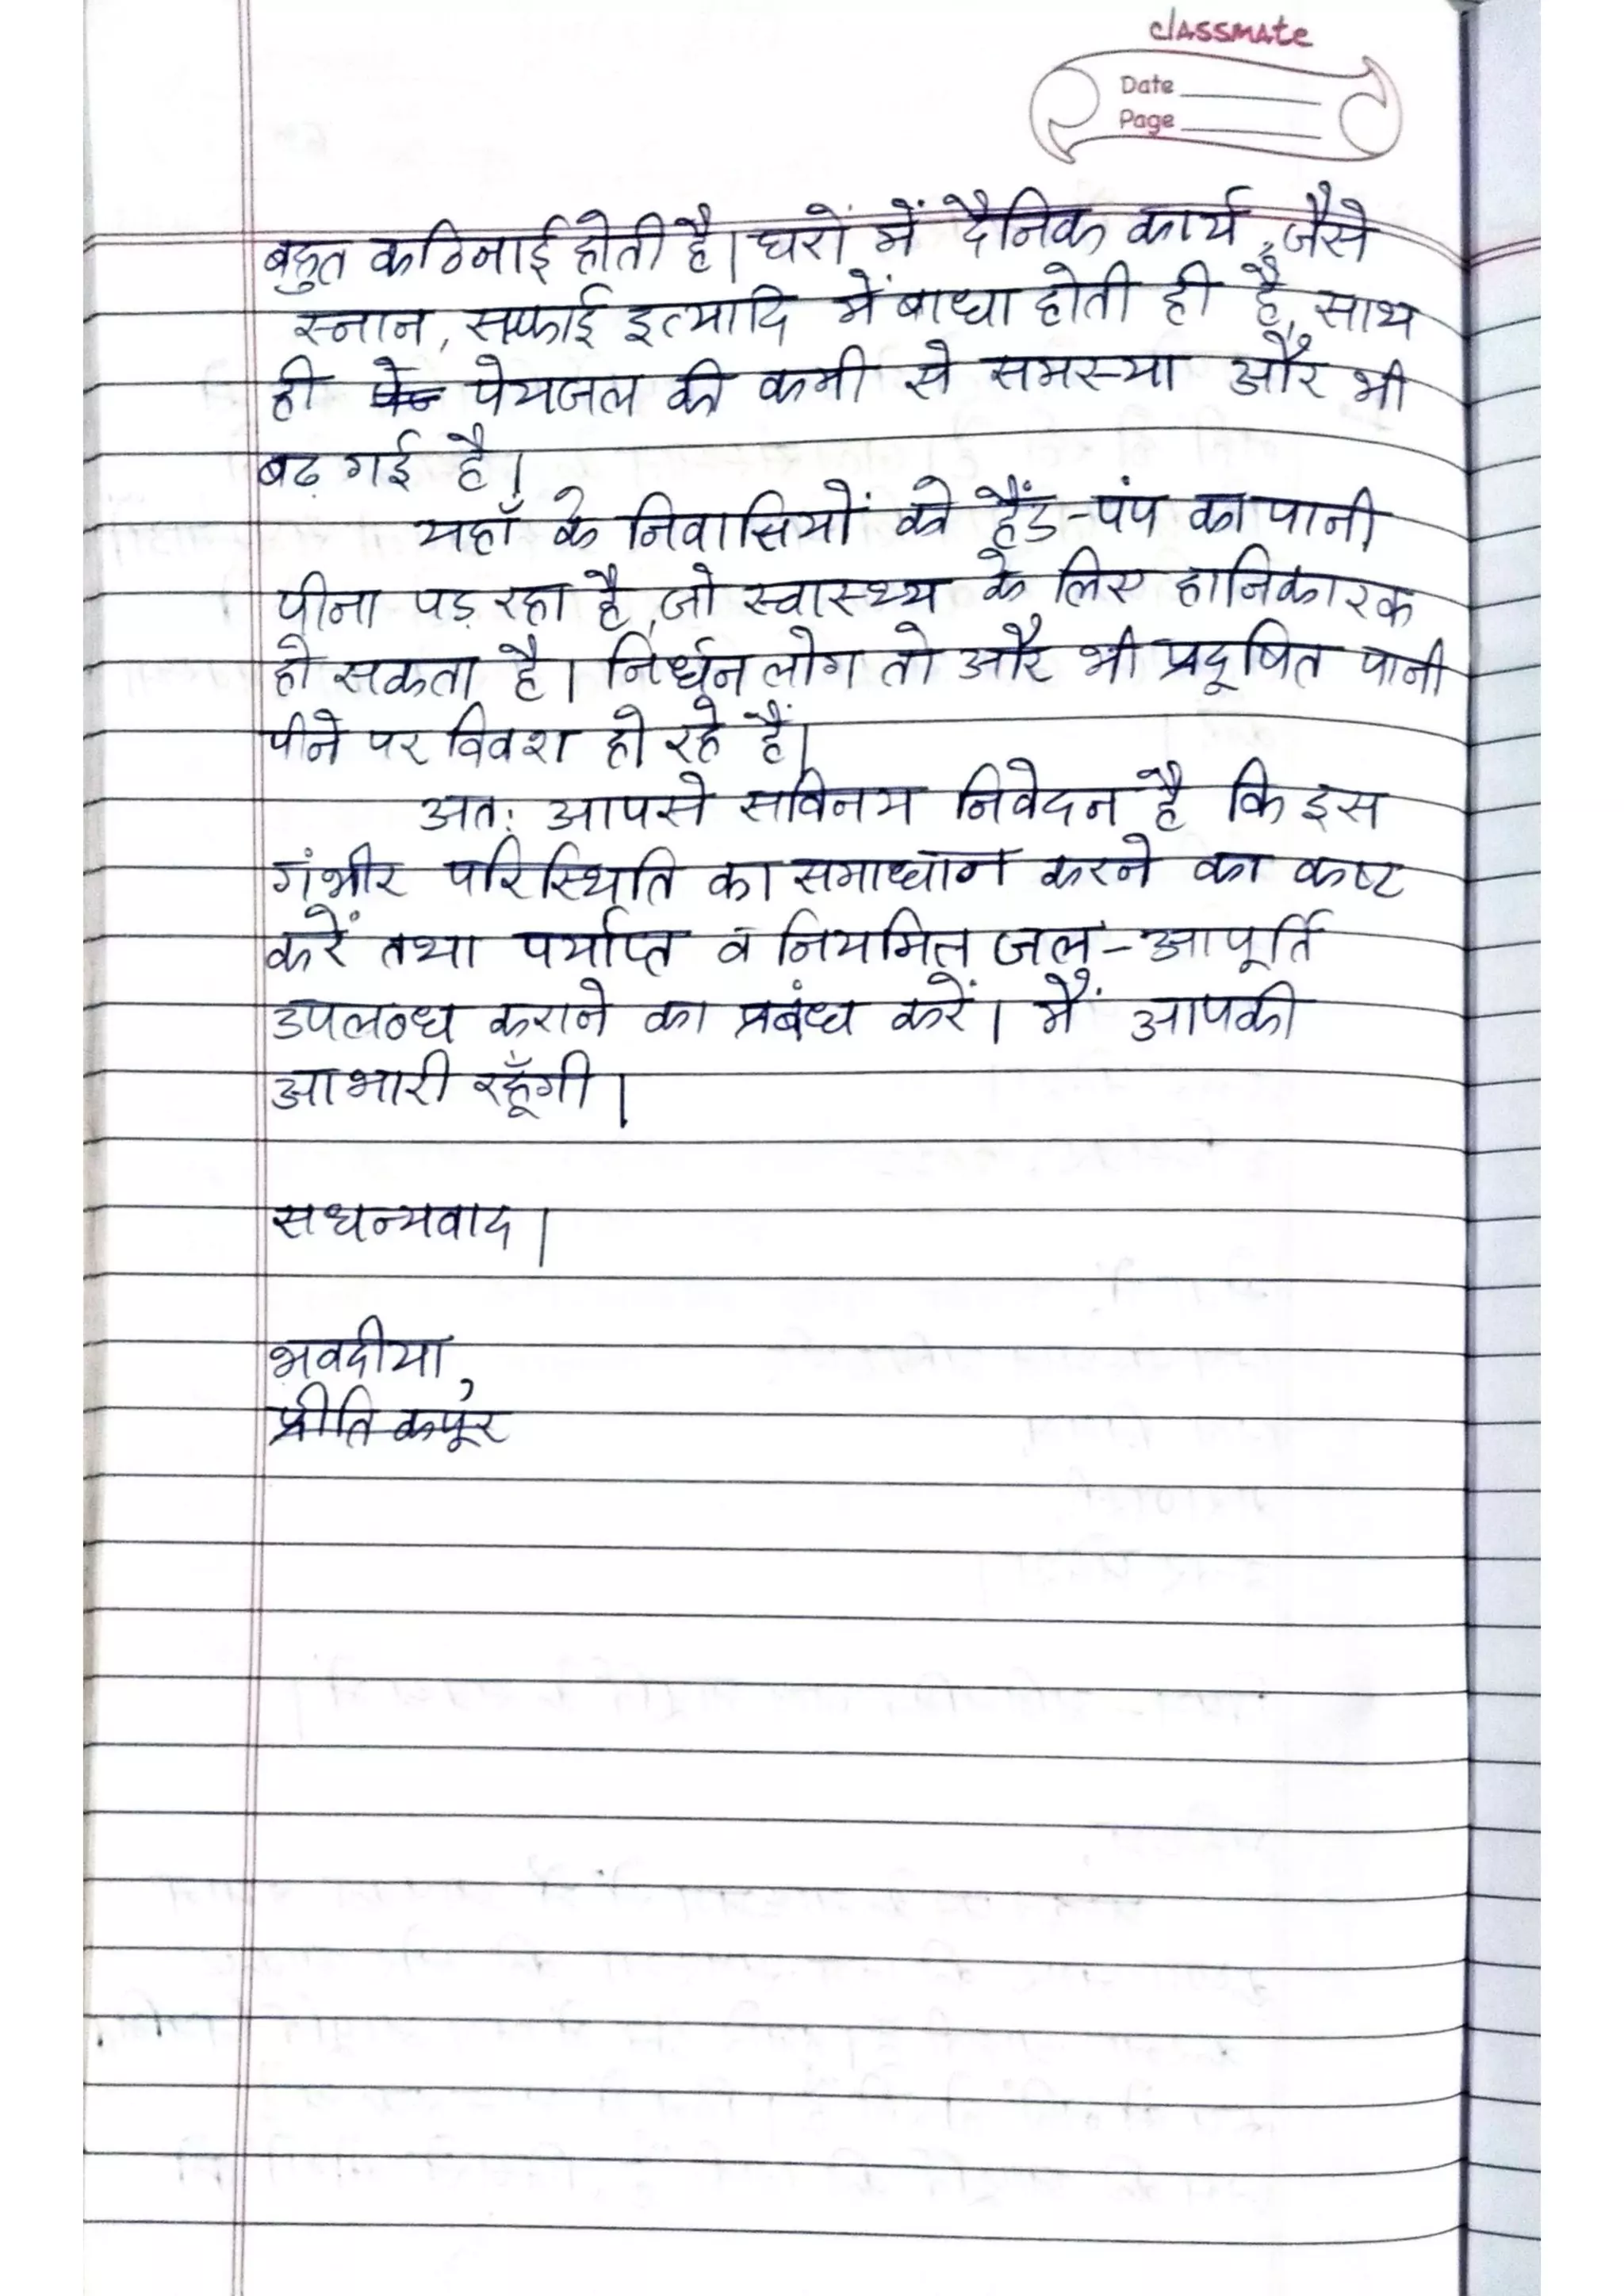 classmate
Date
Page
बहुत कठिनाई होती है। घरों में दैनिक कार्य, जैसे
स्नान, सफाई इत्यादि में बाधा होती ही है, साथ
ही पेयजल की कमी से समस्या और भी
बढ़ गई है।
यहाँ के निवासियों को हैंड-पंप का पानी
पीना पड़ रहा है, जो स्वास्थ्य के लिए हानिकारक
हो सकता है। निर्धन लोग तो और भी प्रदूषित पानी
पीने पर विवश हो रहे हैं।
अतः आपसे सविनय निवेदन है कि इस
गंभीर परिस्थिति का समाधान करने का कष्ट
करें तथा पर्याप्त व नियमित जल-आपूर्ति
उपलब्ध कराने का प्रबंध करें। मैं आपकी
आभारी रहूँगी।
सधन्यवाद।
भवदीया,
प्रीति कपूर